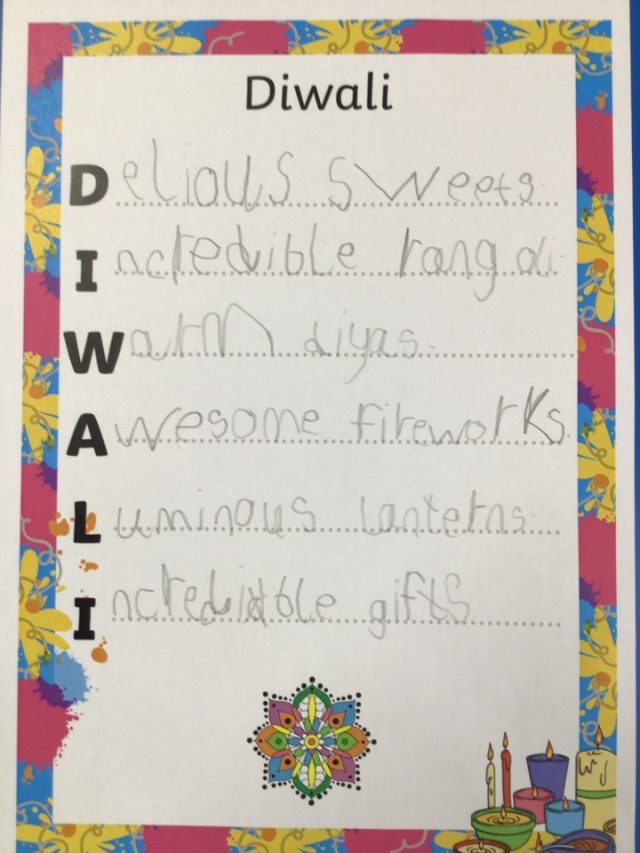 Diwali
Delious sweets.
Incredible rangoli.
Warm diyas.
Awesome fireworks.
Luminous lanterns.
Incredible gifts